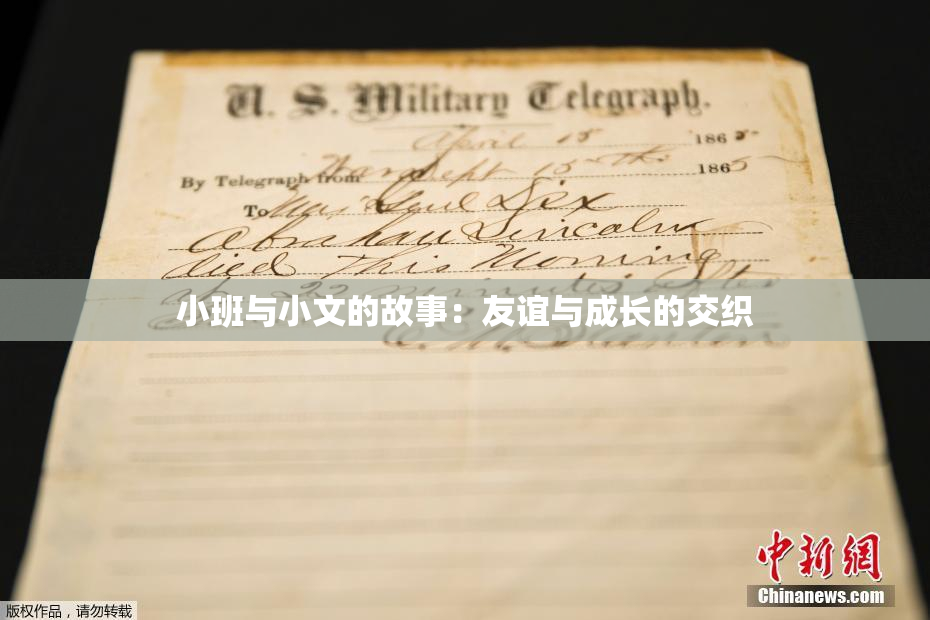 U. S. Military Telegraph.
April 15 1865
By Telegraph from War Dept 15th 1865
To Maj Genl Dix
Abraham Lincoln
died This Morning
at 22 minutes after
小班与小文的故事：友谊与成长的交织
E. M. Stanton
中新网
Chinanews.com
版权作品，请勿转载